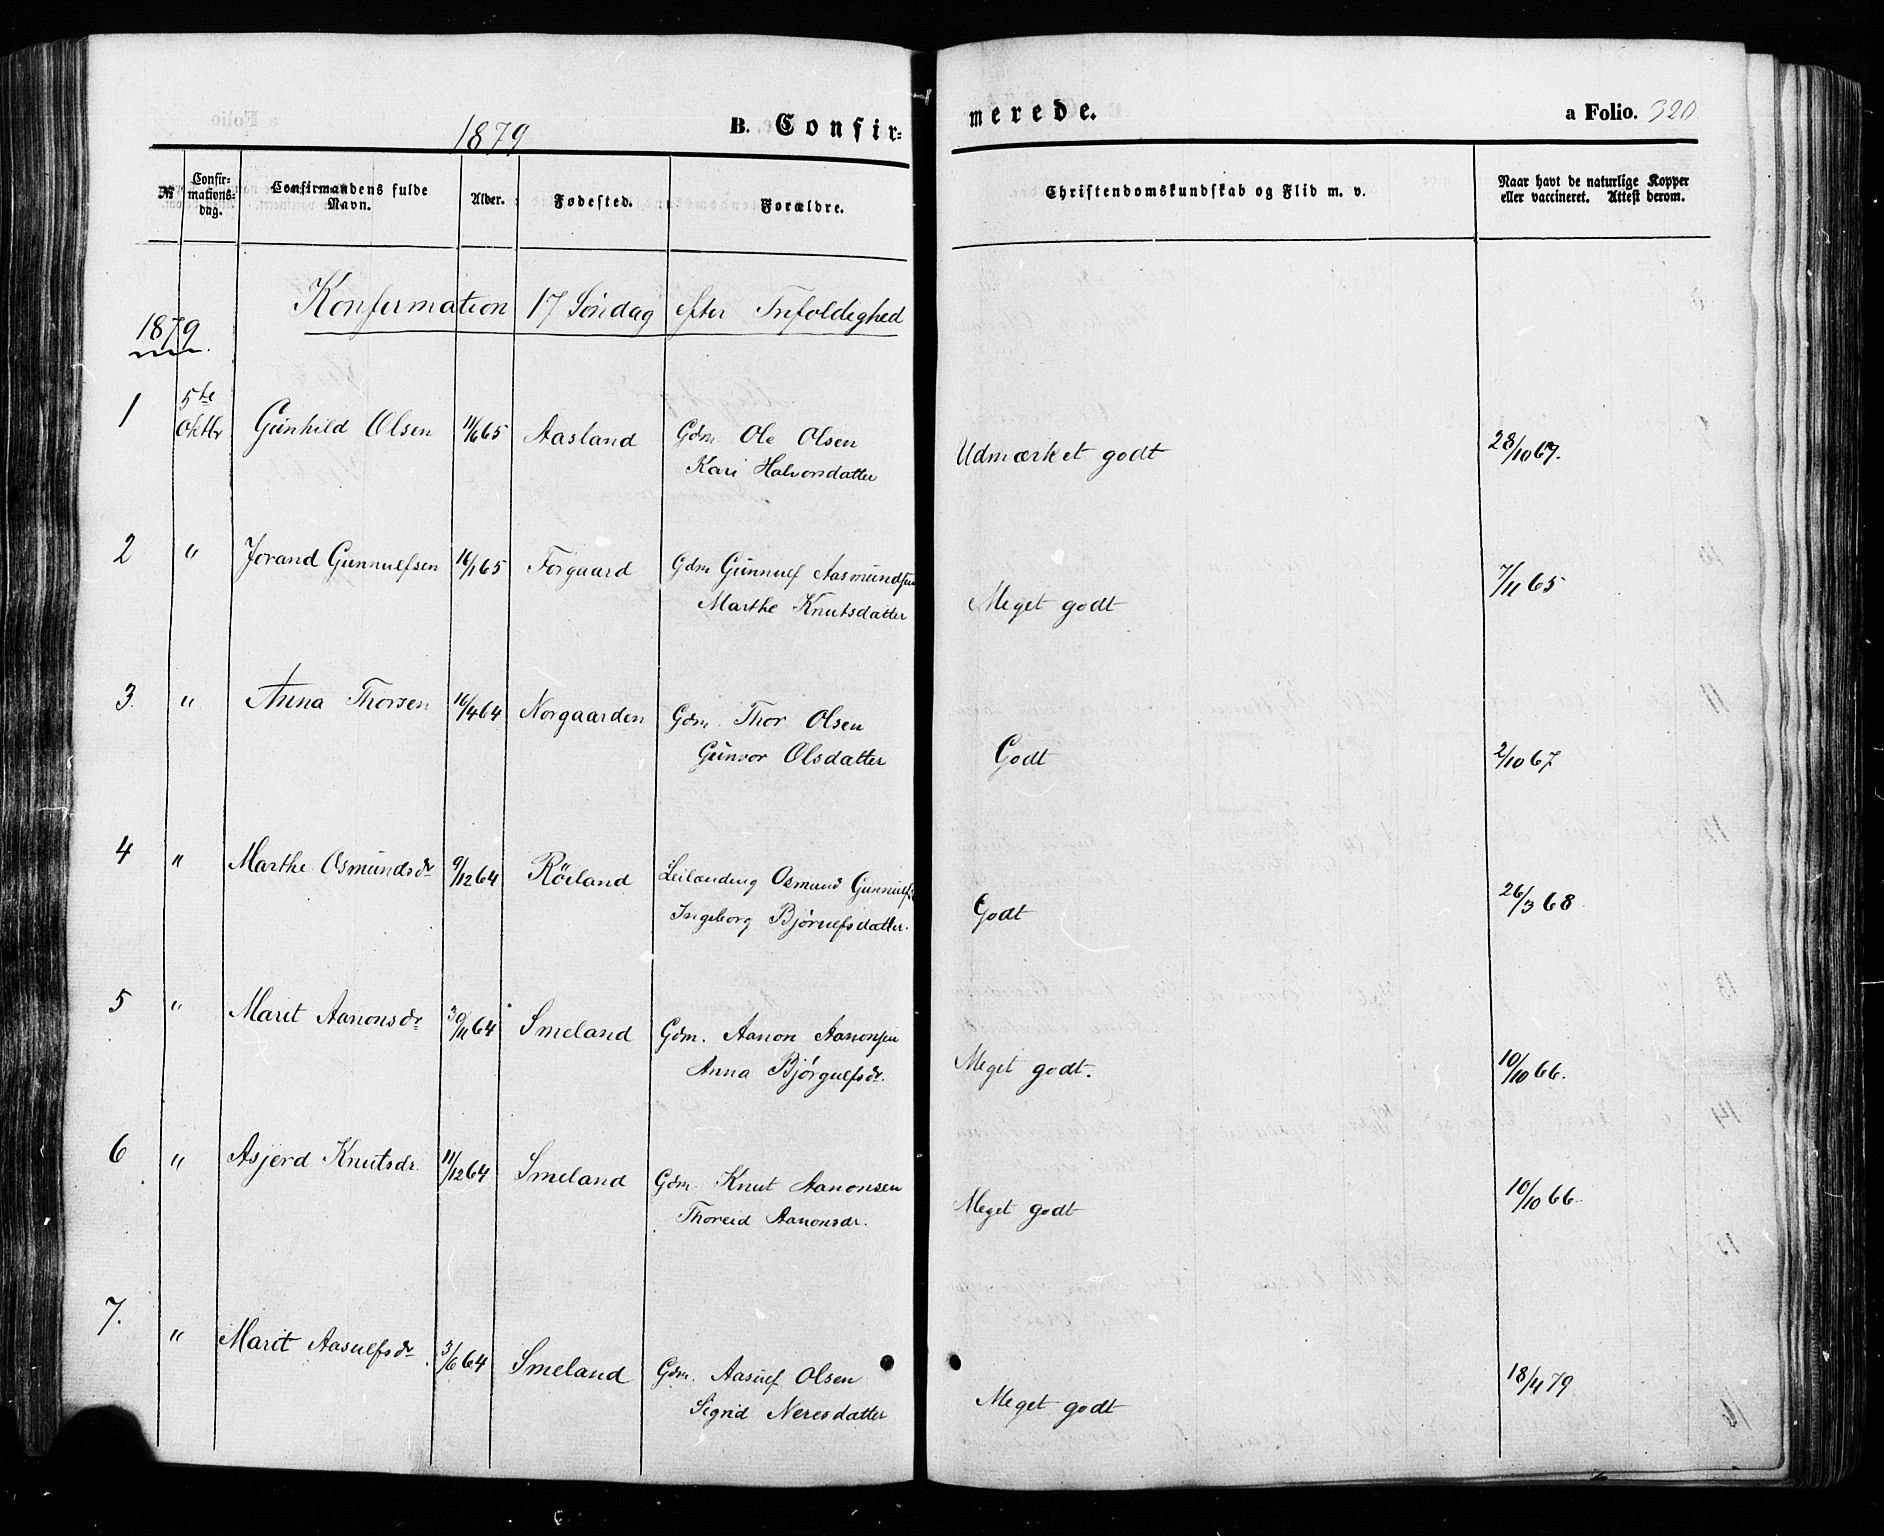 1879
B. Confir-
merede.
a Folio. 320
№
Confir-
mations-
dag.
Confirmandens fulde
Navn.
Alder.
Fødested.
Forældre.
Christendomskundskab og Flid m. v.
Naar havt de naturlige Kopper
eller vaccineret. Attest derom.
Konfirmation 17 Söndag efter Trefoldighed
1879
1 5te Oktbr Gunhild Olsen 11/6 65 Aasland Gdm Ole Olsen
Kari Halvorsdatter
Udmærket godt 28/10 67.
2 " Jorand Gunnulfsen 16/1 65 Forgaard Gdm Gunnulf Aasmundsen
Marthe Knutsdatter
Meget godt 7/11 65
3. " Anna Thorsen 16/4 64 Norgaarden Gdm. Thor Olsen
Gunvor Olsdatter
Godt 2/10 67
4 " Marthe Osmundsdr 9/12 64 Röiland Leilænding Osmund Gunnulfs
Ingeborg Bjørnulfsdatter.
Godt 26/3 68
5 " Marit Aanonsdr 30/11 64 Smeland Gdm. Aanon Aanonsen
Anna Bjørgulfsdr.
Meget godt. 10/10 66.
6 " Asjerd Knutsdr. 11/12 64 Smeland Gdm. Knut Aanonsen
Thoreid Aanonsdr.
Meget godt 10/10 66.
7. " Marit Aasulfsdr. 3/6 64 Smeland Gdm. Aasulf Olsen
Sigrid Neresdatter
Meget godt 18/4 79